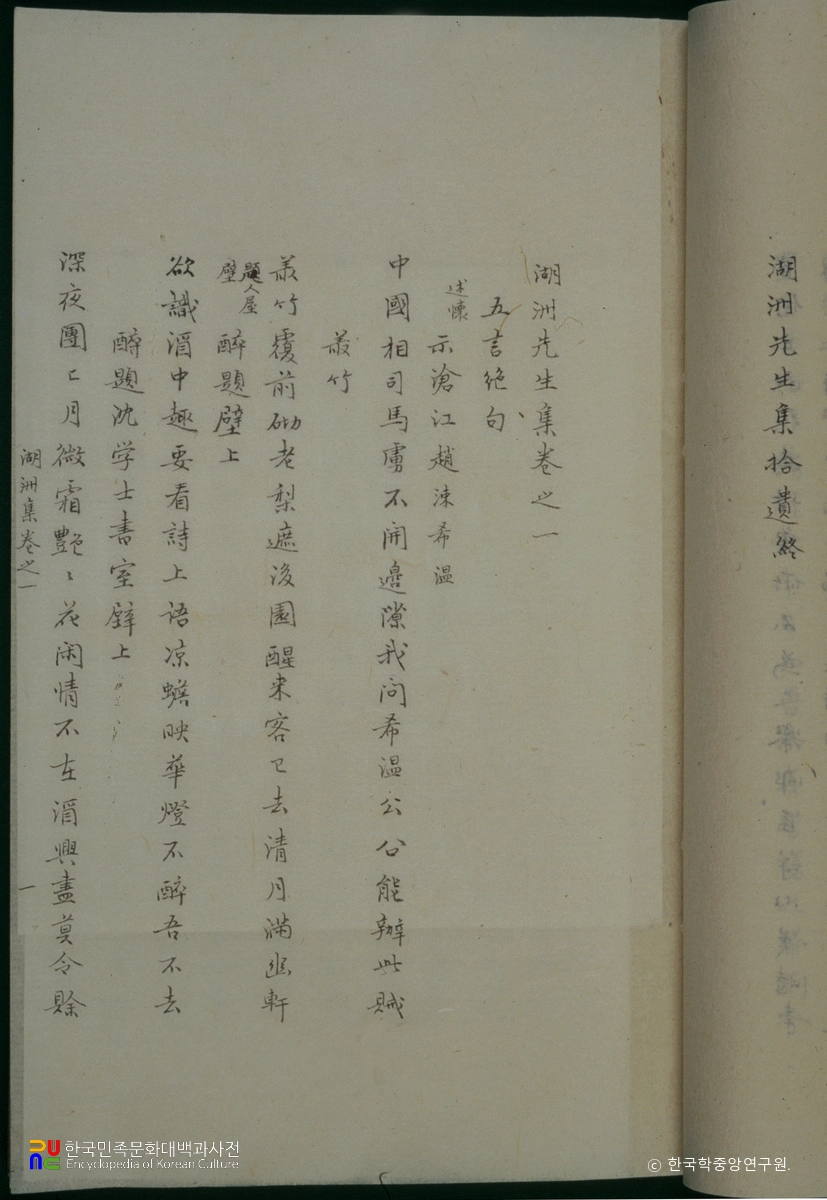 湖洲先生集拾遺終
湖洲先生集卷之一
五言絶句
述懷
示滄江趙涑希温
中國相司馬虜不開邊隙我问希温公公能辦此賊
叢竹
叢竹覆前砌老梨遮後園醒来客已去清月滿幽軒
題人屋壁
醉題壁上
欲識酒中趣要看詩上语凉蟾映華燈不醉吾不去
醉題沈学士書室壁上
深夜團〻月微霜艶〻花闲情不在酒興盡莫令賖
湖洲集卷之一
一
한국민족문화대백과사전
Encyclopedia of Korean Culture
© 한국학중앙연구원.